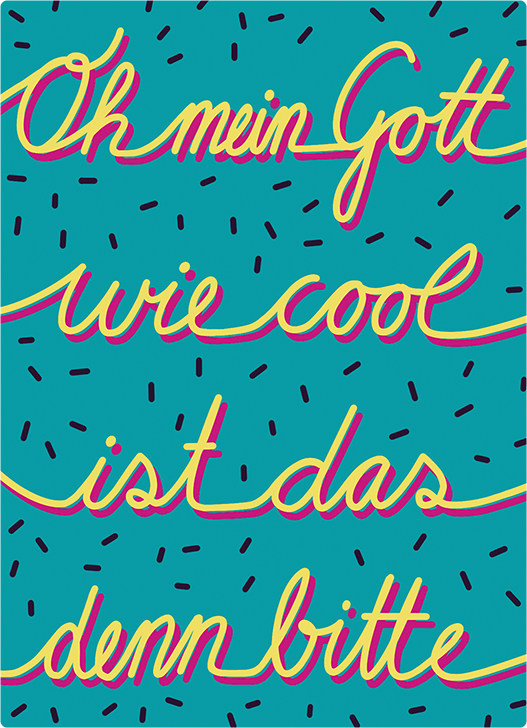 Oh mein Gott
wie cool
ist das
denn bitte